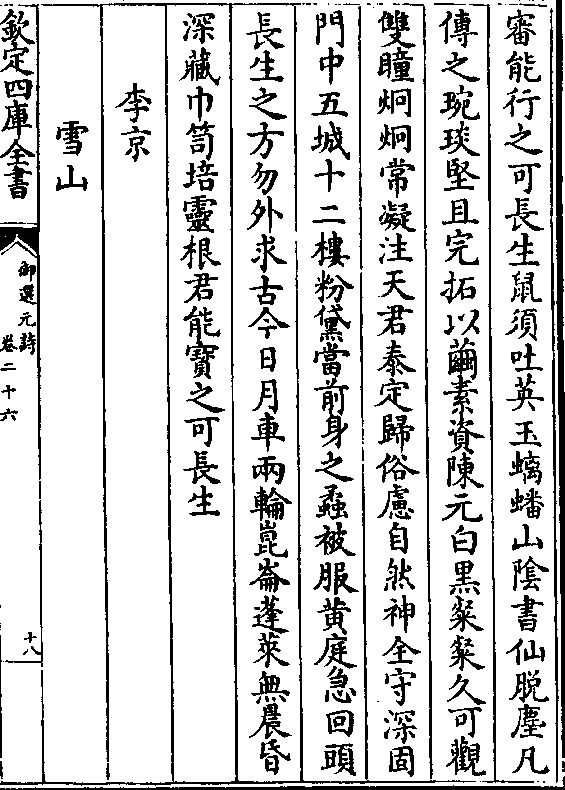 審能行之可長生鼠須吐英玉螭蟠山陰書仙脱塵凡
傳之琬琰堅且完拓以繭素資陳元白黒粲粲久可觀
雙瞳炯炯常凝注天君泰定歸俗慮自然神全守深固
門中五城十二樓粉黛當前身之蟊被服黄庭急回頭
長生之方勿外求古今日月車兩輪崑崙蓬萊無晨昏
深藏巾笥培靈根君能寳之可長生
李京
雪山
欽定四庫全書
御選元詩
卷二十六
十八